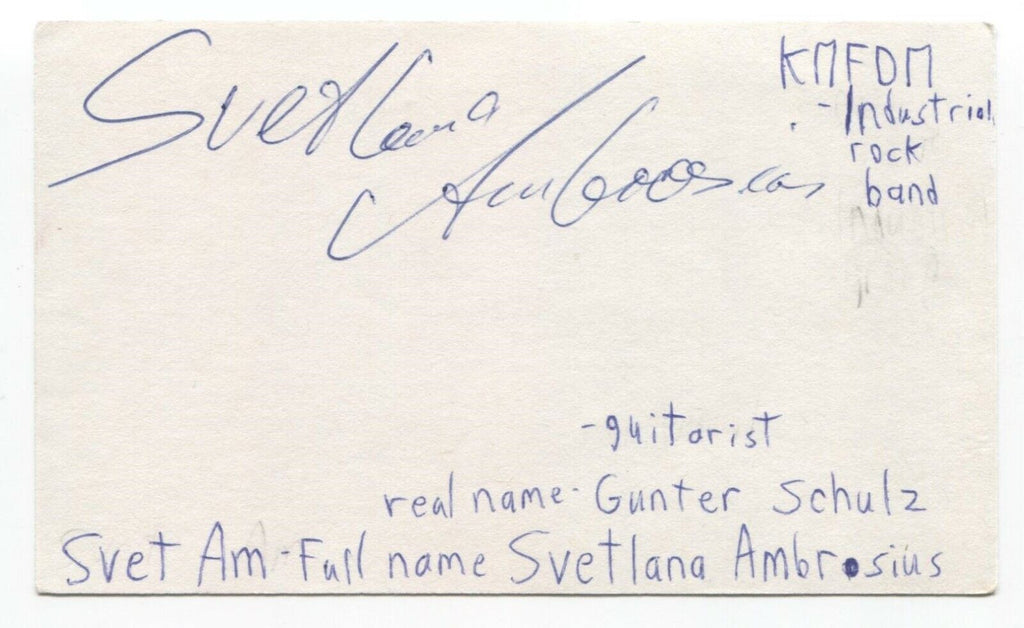 Svetlana
Ambrosius
KMFDM
-Industrial
rock
band
-guitarist
real name- Gunter Schulz
Svet Am-Full name Svetlana Ambrosius